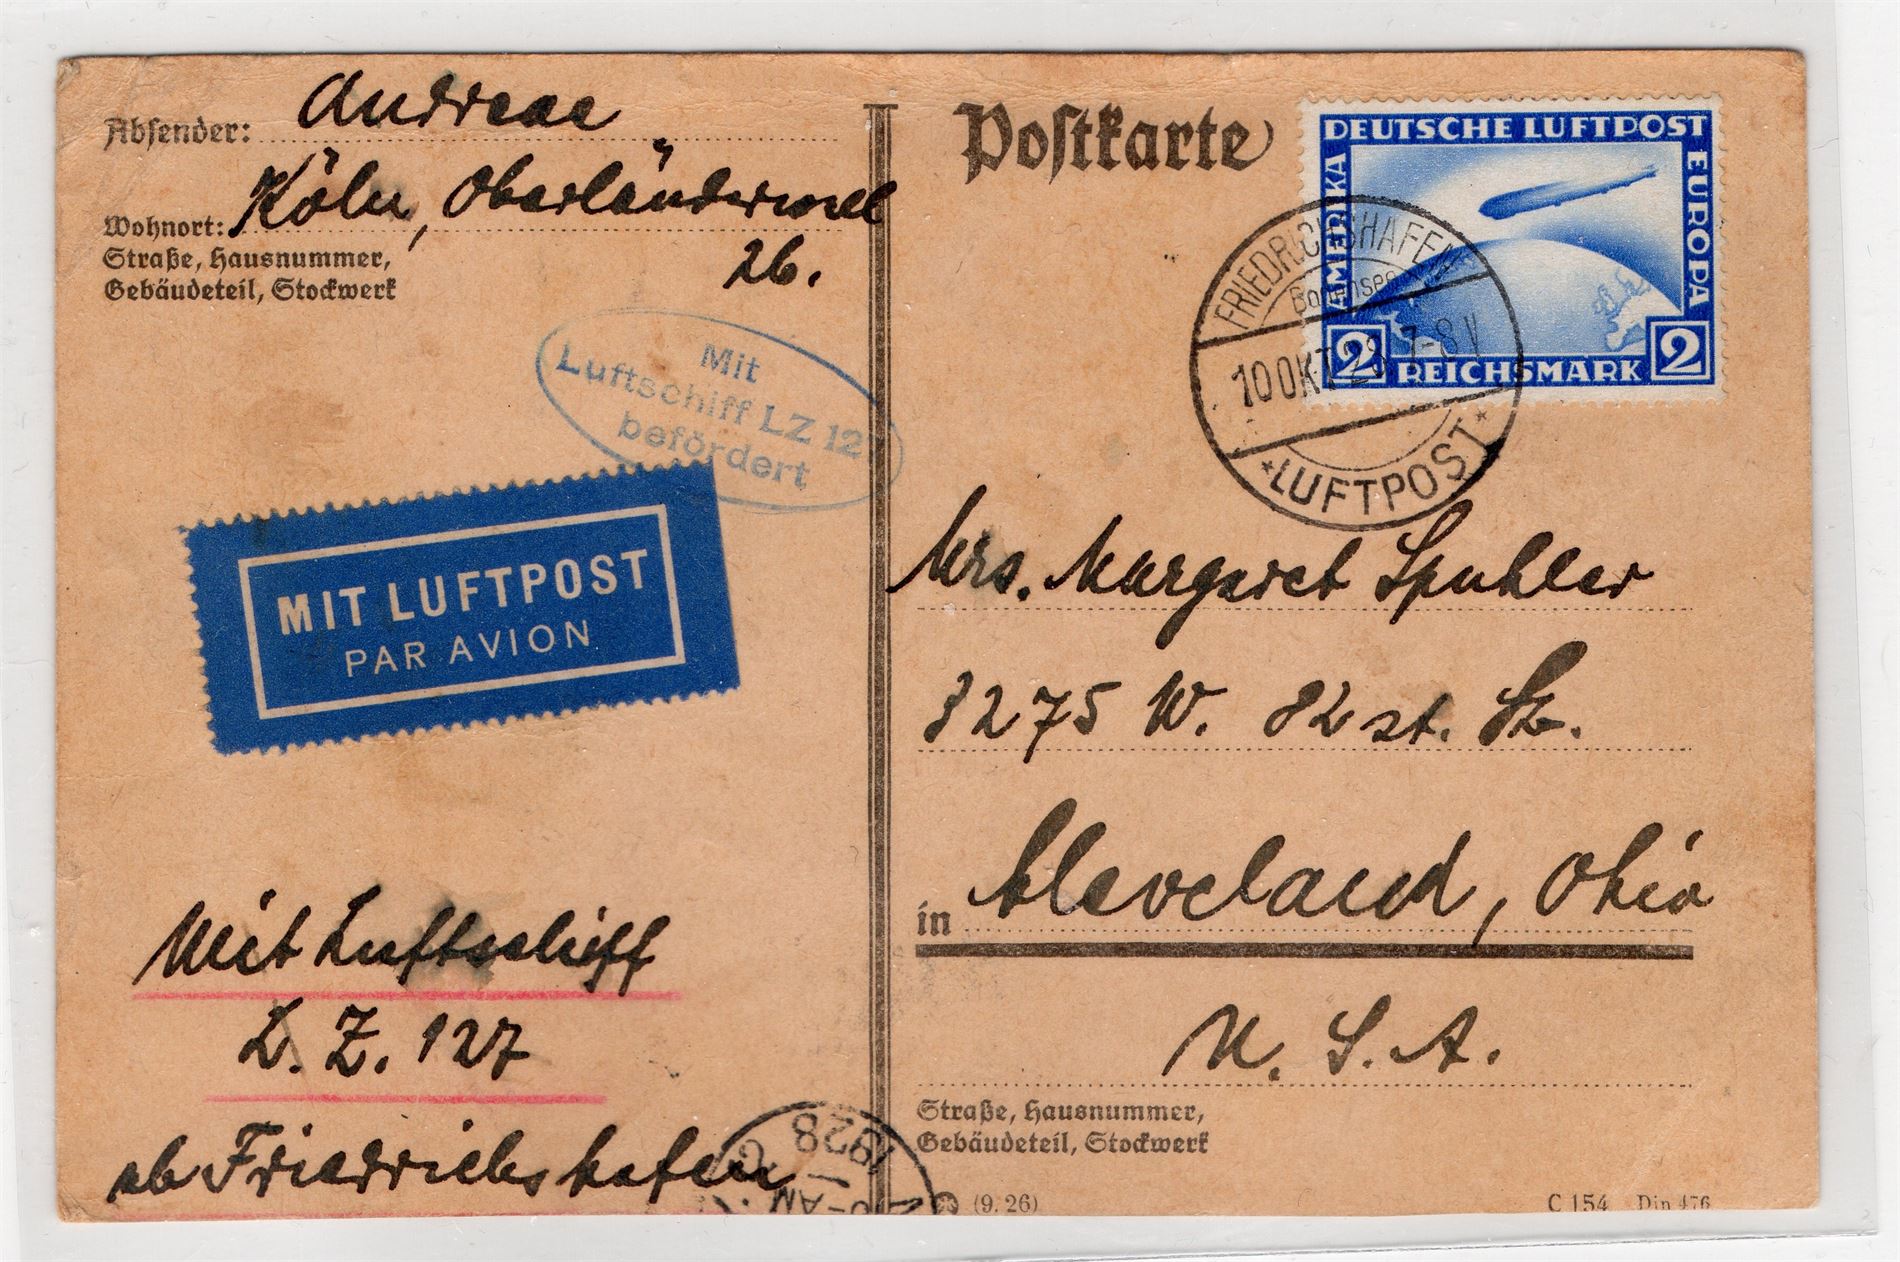 Absender: Andreae
Wohnort: Köln, Oberländerwall
26.
Straße, Hausnummer,
Gebäudeteil, Stockwerk
Mit
Luftschiff LZ 12
befördert
MIT LUFTPOST
PAR AVION
Mit Luftschiff
L. Z. 127
ab Friedrichshafen
1928
AM
Postkarte
DEUTSCHE LUFTPOST
AMERIKA
EUROPA
2 REICHSMARK 2
FRIEDRICHSHAFEN
Bodensee
10 OKT 28 7-8 V
* LUFTPOST *
Mrs. Margaret Spuhler
3275 W. 82 st. St.
in Cleveland, Ohio
U. S. A.
Straße, Hausnummer,
Gebäudeteil, Stockwerk
(9. 26)
C 154 Din 476